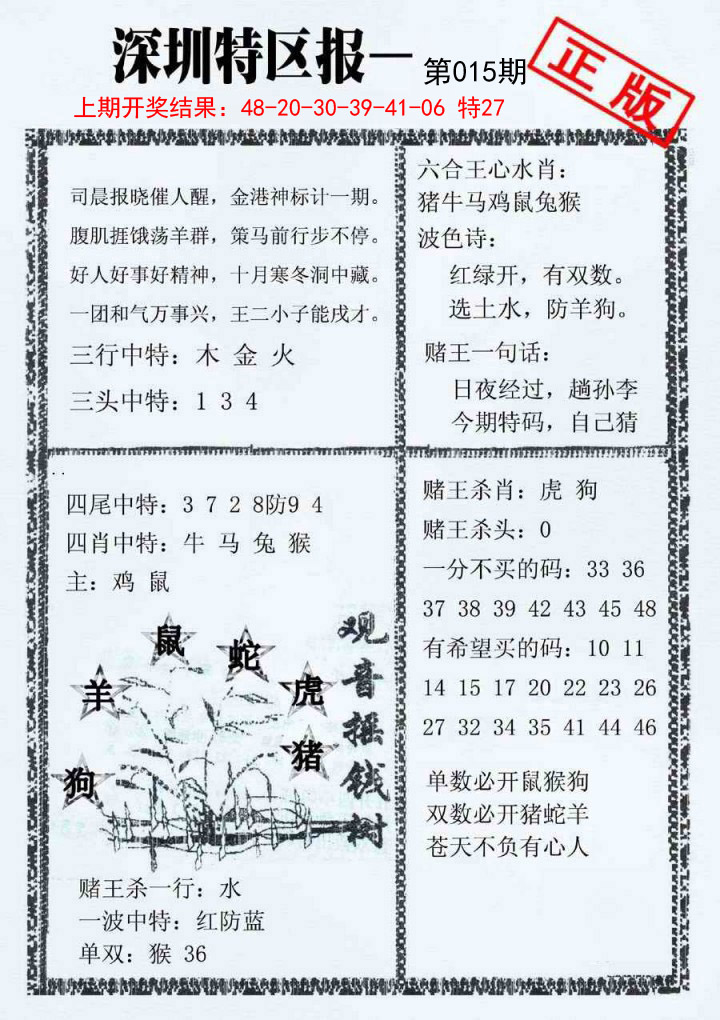 深圳特区报一
第015期
正版
上期开奖结果：48-20-30-39-41-06 特27
司晨报晓催人醒，金港神标计一期。
腹肌捱饿荡羊群，策马前行步不停。
好人好事好精神，十月寒冬洞中藏。
一团和气万事兴，王二小子能戌才。
三行中特：木 金 火
三头中特：1 3 4
六合王心水肖：
猪牛马鸡鼠兔猴
波色诗：
红绿开，有双数。
选土水，防羊狗。
赌王一句话：
日夜经过，趟孙李
今期特码，自己猜
四尾中特：3 7 2 8防9 4
四肖中特：牛 马 兔 猴
主：鸡 鼠
鼠
蛇
羊
虎
猪
狗
观音摇钱树
赌王杀一行：水
一波中特：红防蓝
单双：猴 36
赌王杀肖：虎 狗
赌王杀头：0
一分不买的码：33 36
37 38 39 42 43 45 48
有希望买的码：10 11
14 15 17 20 22 23 26
27 32 34 35 41 44 46
单数必开鼠猴狗
双数必开猪蛇羊
苍天不负有心人